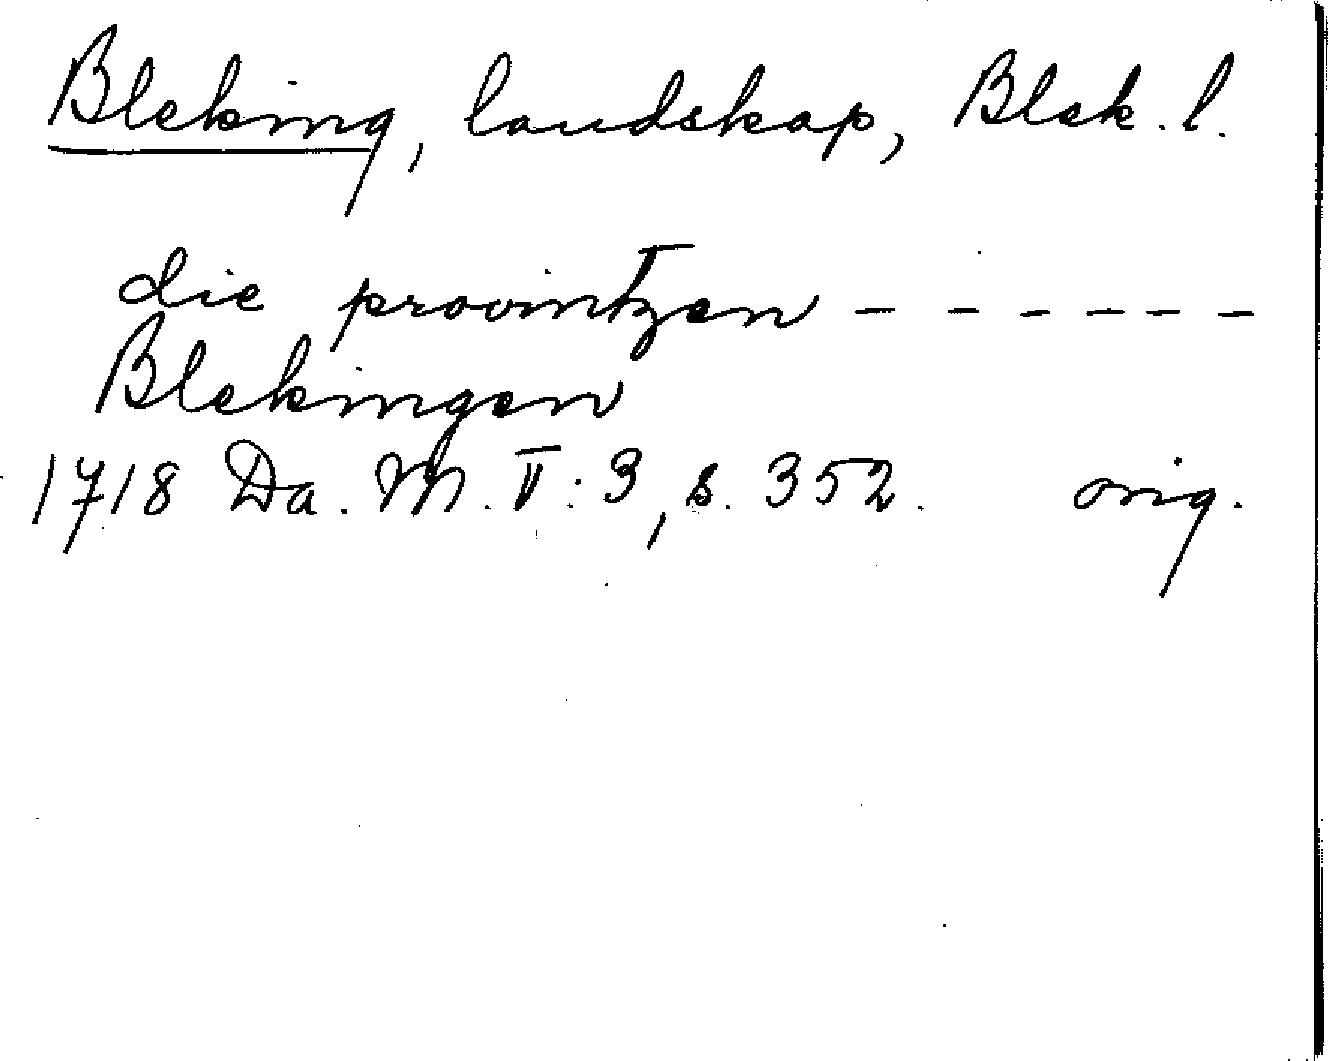 Bleking, landskap, Blek. l.
die provintzen - - - - - -
Blekingen
1718 Da. M. V: 3, s. 352. orig.